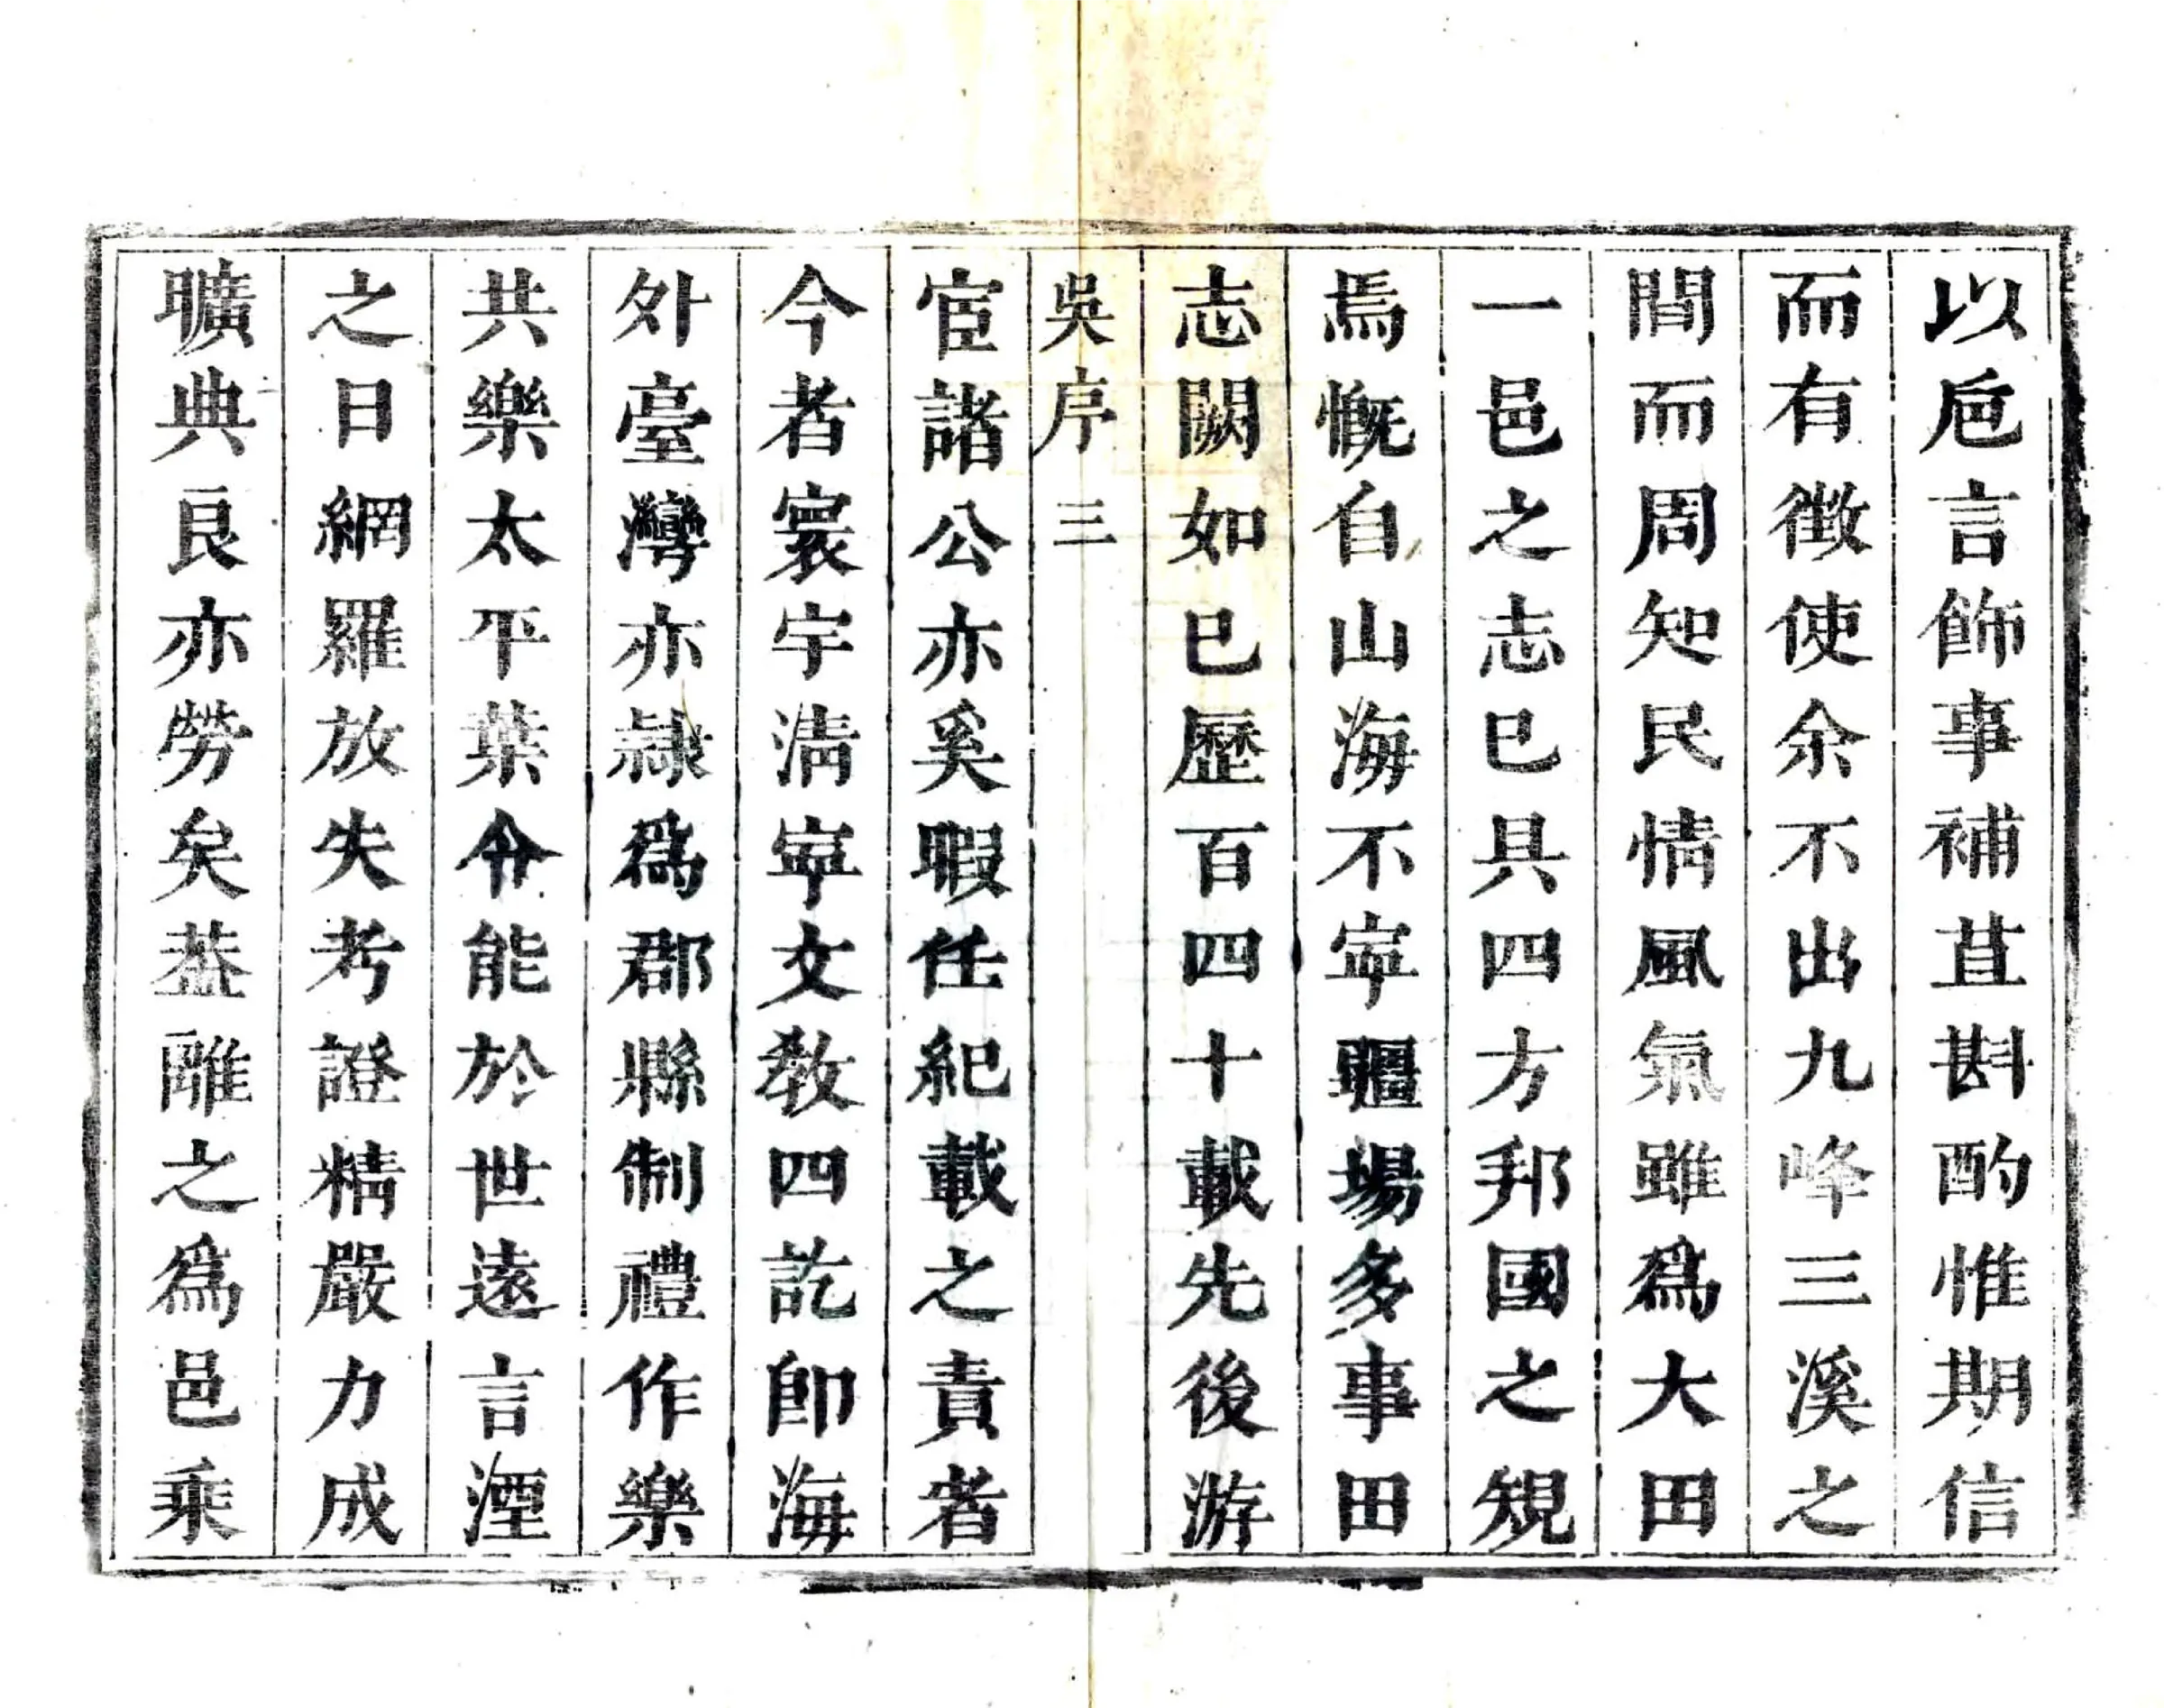 以巵言飾事補苴斟酌惟期信
而有徵使余不出九峰三溪之
間而周知民情風氣雖爲大田
一邑之志已具四方邦國之規
焉慨自山海不寜疆場多事田
志闕如已歷百四十載先後游
吳序 三
宦諸公亦奚暇任紀載之責者
今者寰宇淸寜文敎四訖卽海
外臺灣亦隷爲郡縣制禮作樂
共樂太平葉令能於世遠言湮
之日網羅放失考證精嚴力成
曠典良亦勞矣葢雖之爲邑乘